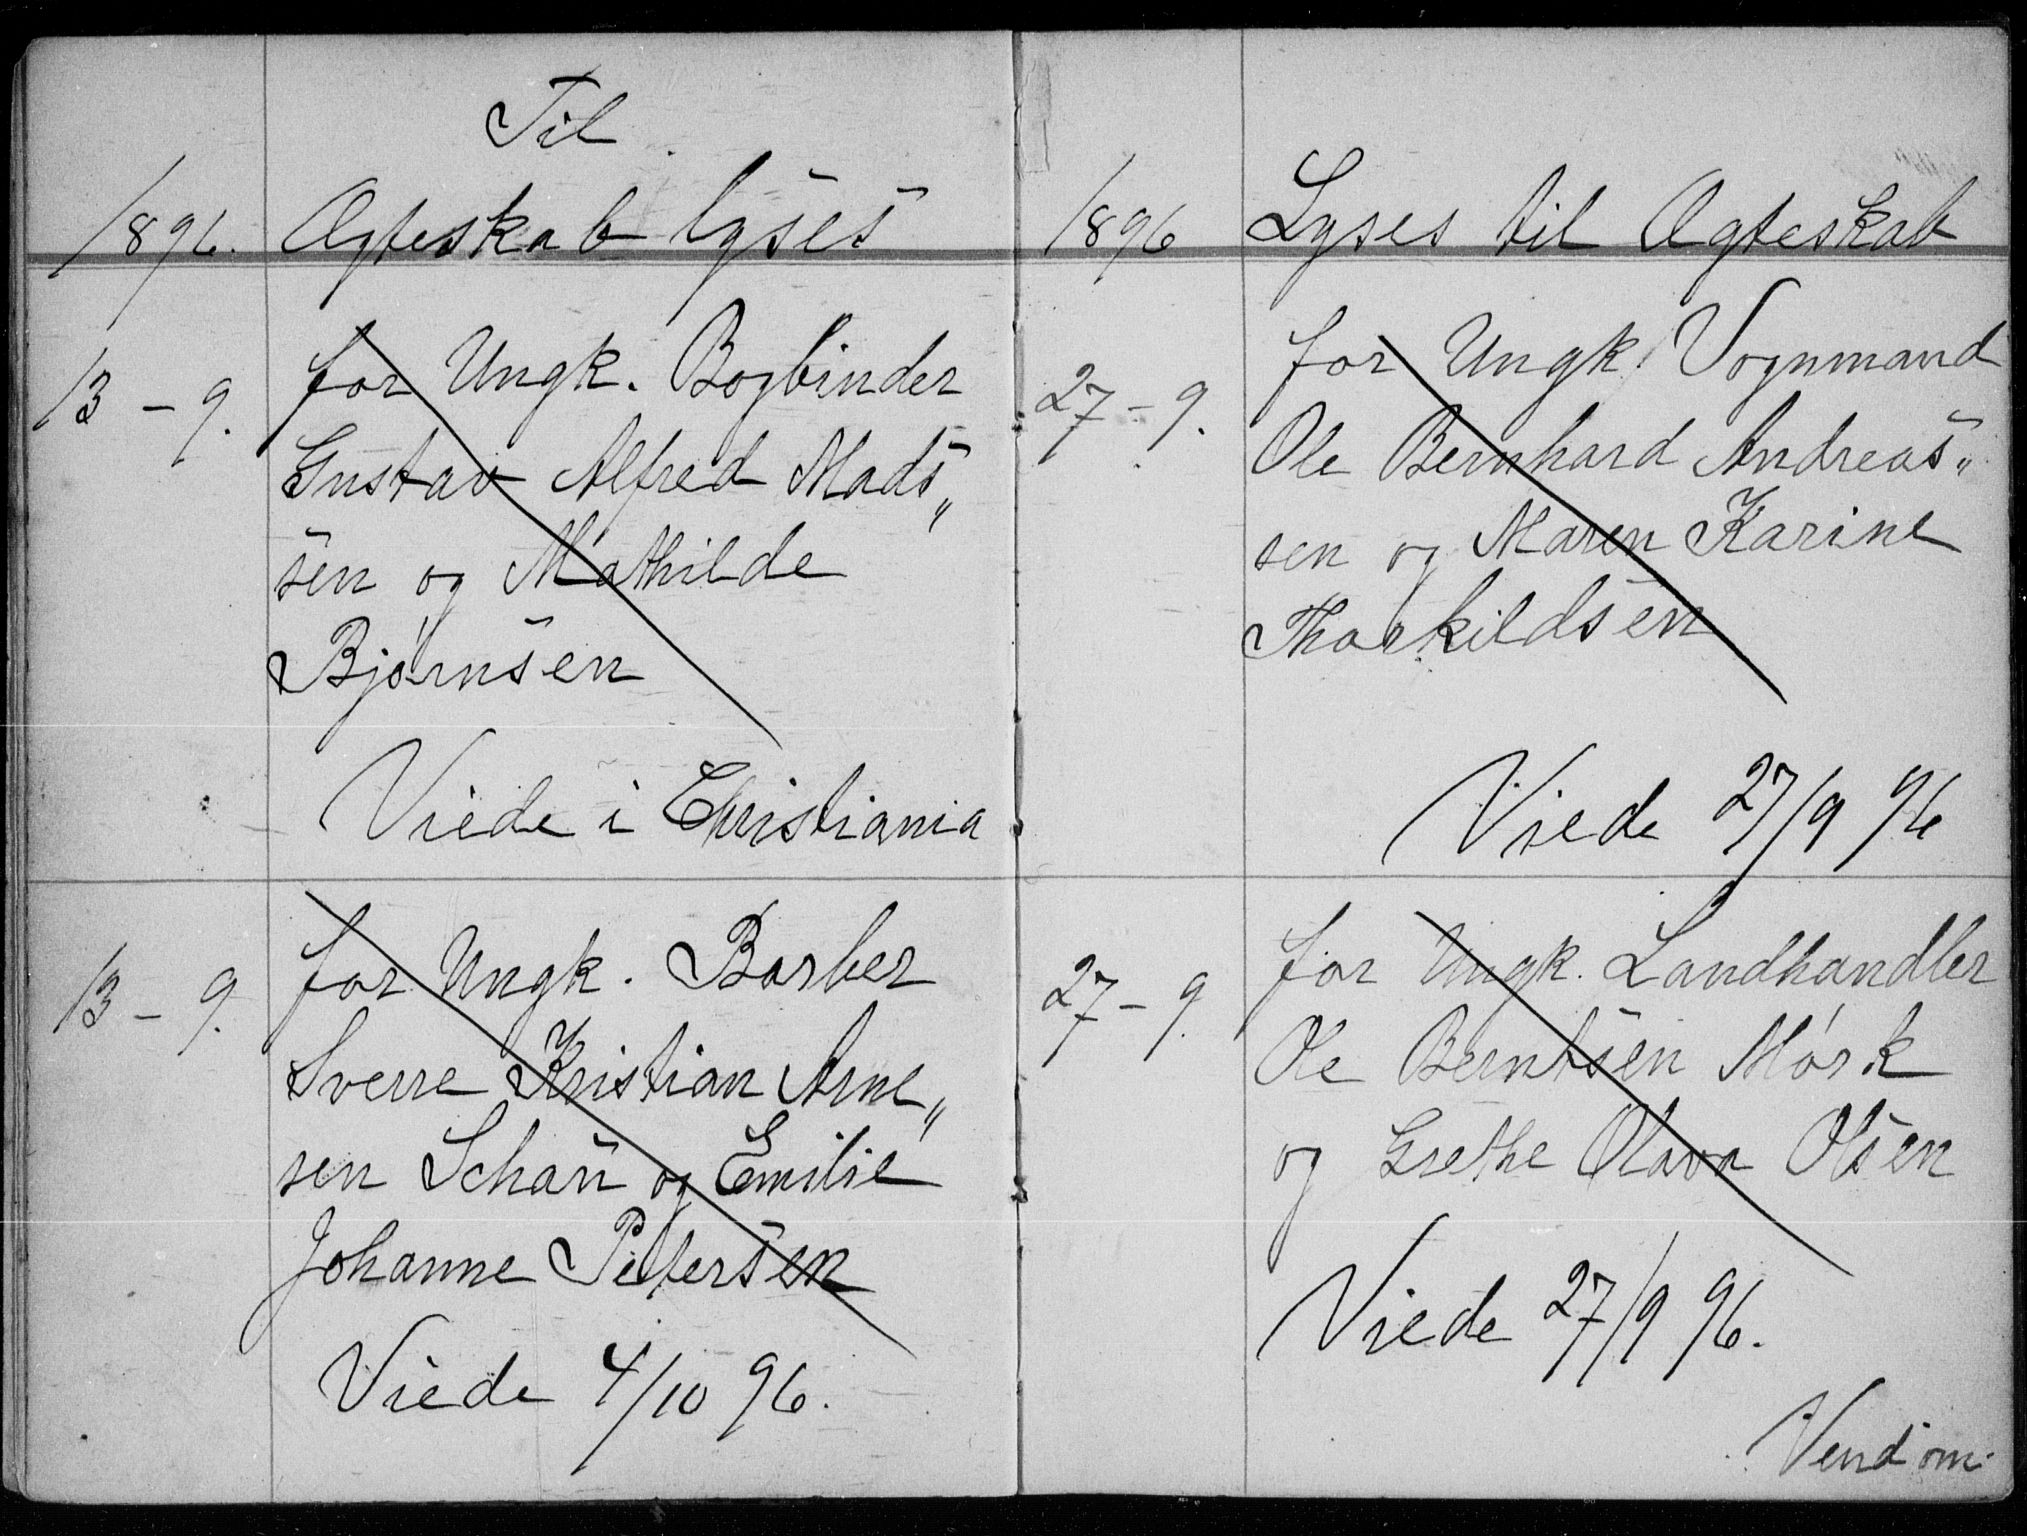 Til
1896. Ægteskab lyses
13 - 9. for Ungk. Bogbinder
Gustav Alfred Mads„
sen og Mathilde
Bjørnsen
Viede i Christiania
13 - 9. for Ungk. Barber
Sverre Kristian Arne„
sen Schau og Emilie
Johanne Petersen
Viede 4/10 96.
1896 Lyses til Ægteskab
27 - 9. for Ungk. Vognmand
Ole Bernhard Andreas„
sen og Maren Karine
Thorkildsen
Viede 27/9 96
27 - 9. for Ungk. Landhandler
Ole Berntsen Mørk
og Grethe Olava Olsen
Viede 27/9 96.
Vend om.